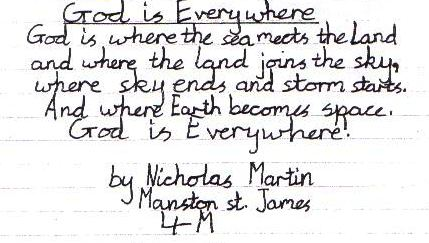 God is Everywhere
God is where the sea meets the Land
and where the land joins the sky,
where sky ends and storm starts.
And where Earth becomes space.
God is Everywhere!
by Nicholas Martin
Manston st. James
4-M